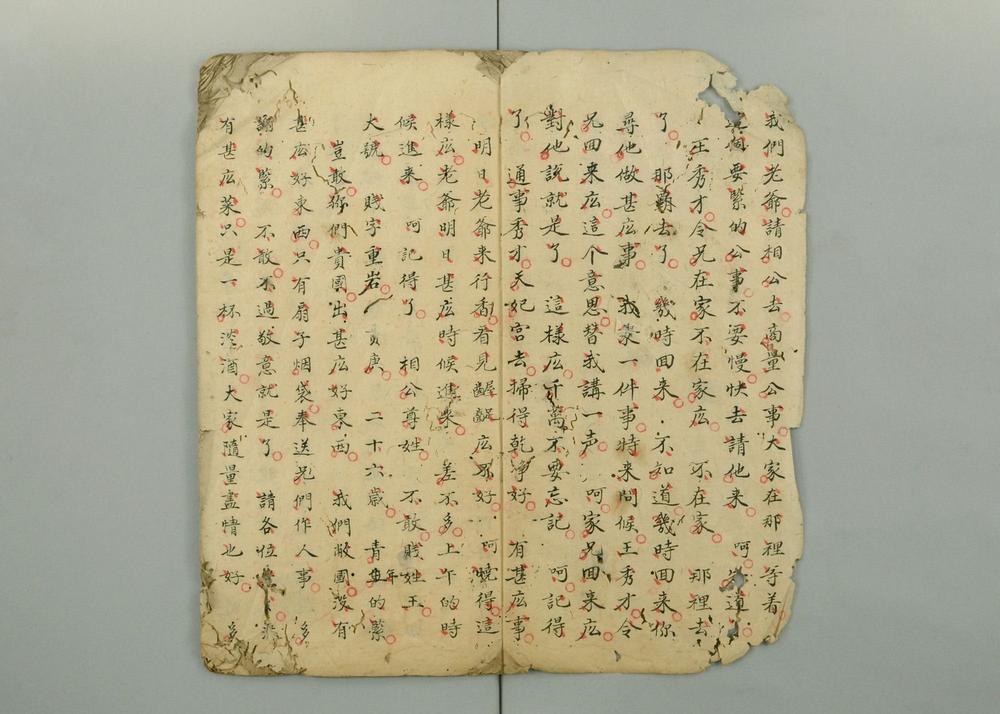 我們老爺請相公去商量公事大家在那裡等着
個要緊的公事不要慢快去請他来 呵 道
王秀才令兄在家不在家庅 不在家 那裡去
了 那覇去了 幾時回来 不知道幾時回来你
尋他做甚庅事 我来一件事特来問候王秀才令
兄回来庅這个意思替我講一声 呵家兄回来庅
對他說就是了 這樣庅千萬不要忘記 呵記得
了 通事秀才天妃宮去掃得乾淨好 有甚庅事
明日老爺来行香看見齷齪庅不好 呵曉得這
樣庅老爺明日甚庅時候進来 差不多上午的時
候進来 呵記得了 相公尊姓 不敢賤姓王
大號 賤字重岩 貴庚 二十六歲 青年的緊
豈敢你們貴國出甚庅好東西 我們敝國沒有
甚庅好東西只有扇子烟袋奉送兄們作人事 多
謝的緊 不敢不過敬意就是了 請各位 来
有甚庅菜只是一杯淡酒大家隨量盡情也好 多